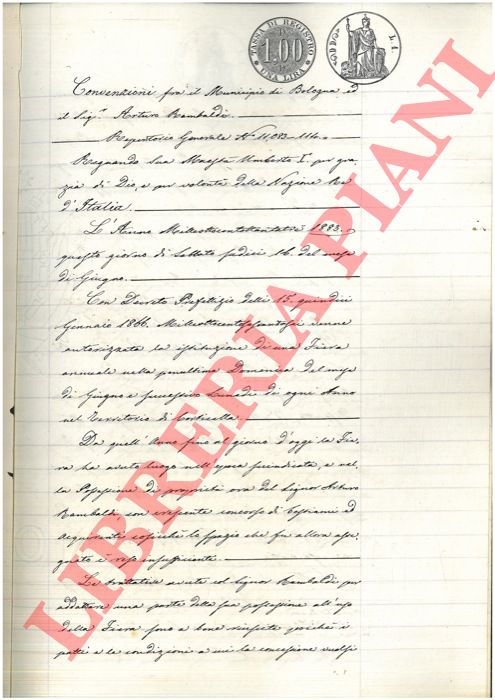 TASSA DI REGISTRO
1.00
UNA LIRA
L. 1.
Convenzioni fra il Municipio di Bologna ed
il Sig.r Arturo Rambaldi.
Repertorio Generale N.o 11,083-114.
Regnando Sua Maestà Umberto I.o per gra
zia di Dio, e per volontà della Nazione Re
d'Italia.
L'Anno Milleottocentottantatrè 1883.
questo giorno di Sabbato sedici 16. del mese
di Giugno.
Con Decreto Prefettizio delli 15. quindici
Gennaio 1866. Milleottocentosessantasei venne
autorizzata la istituzione di una Fiera
annuale nella penultima Domenica del mese
di Giugno e successivo Lunedì di ogni Anno
nel Territorio di Corticella.
Da quell'Anno fino al giorno d'oggi la Fie
ra ha avuto luogo nell'epoca preindicata, e nel
la Possessione di proprietà ora del Signor Arturo
Rambaldi con crescente concorso di Bestiami ed
Acquirenti cosicchè lo spazio che fu allora asse
gnato è reso insufficiente.
Le trattative avute col Signor Rambaldi per
addattare una parte della sua possessione all'uso
della Fiera sono a bene riuscite perchè i
patti e le condizioni a cui la concessione vuolsi
LIBRERIA PIANI